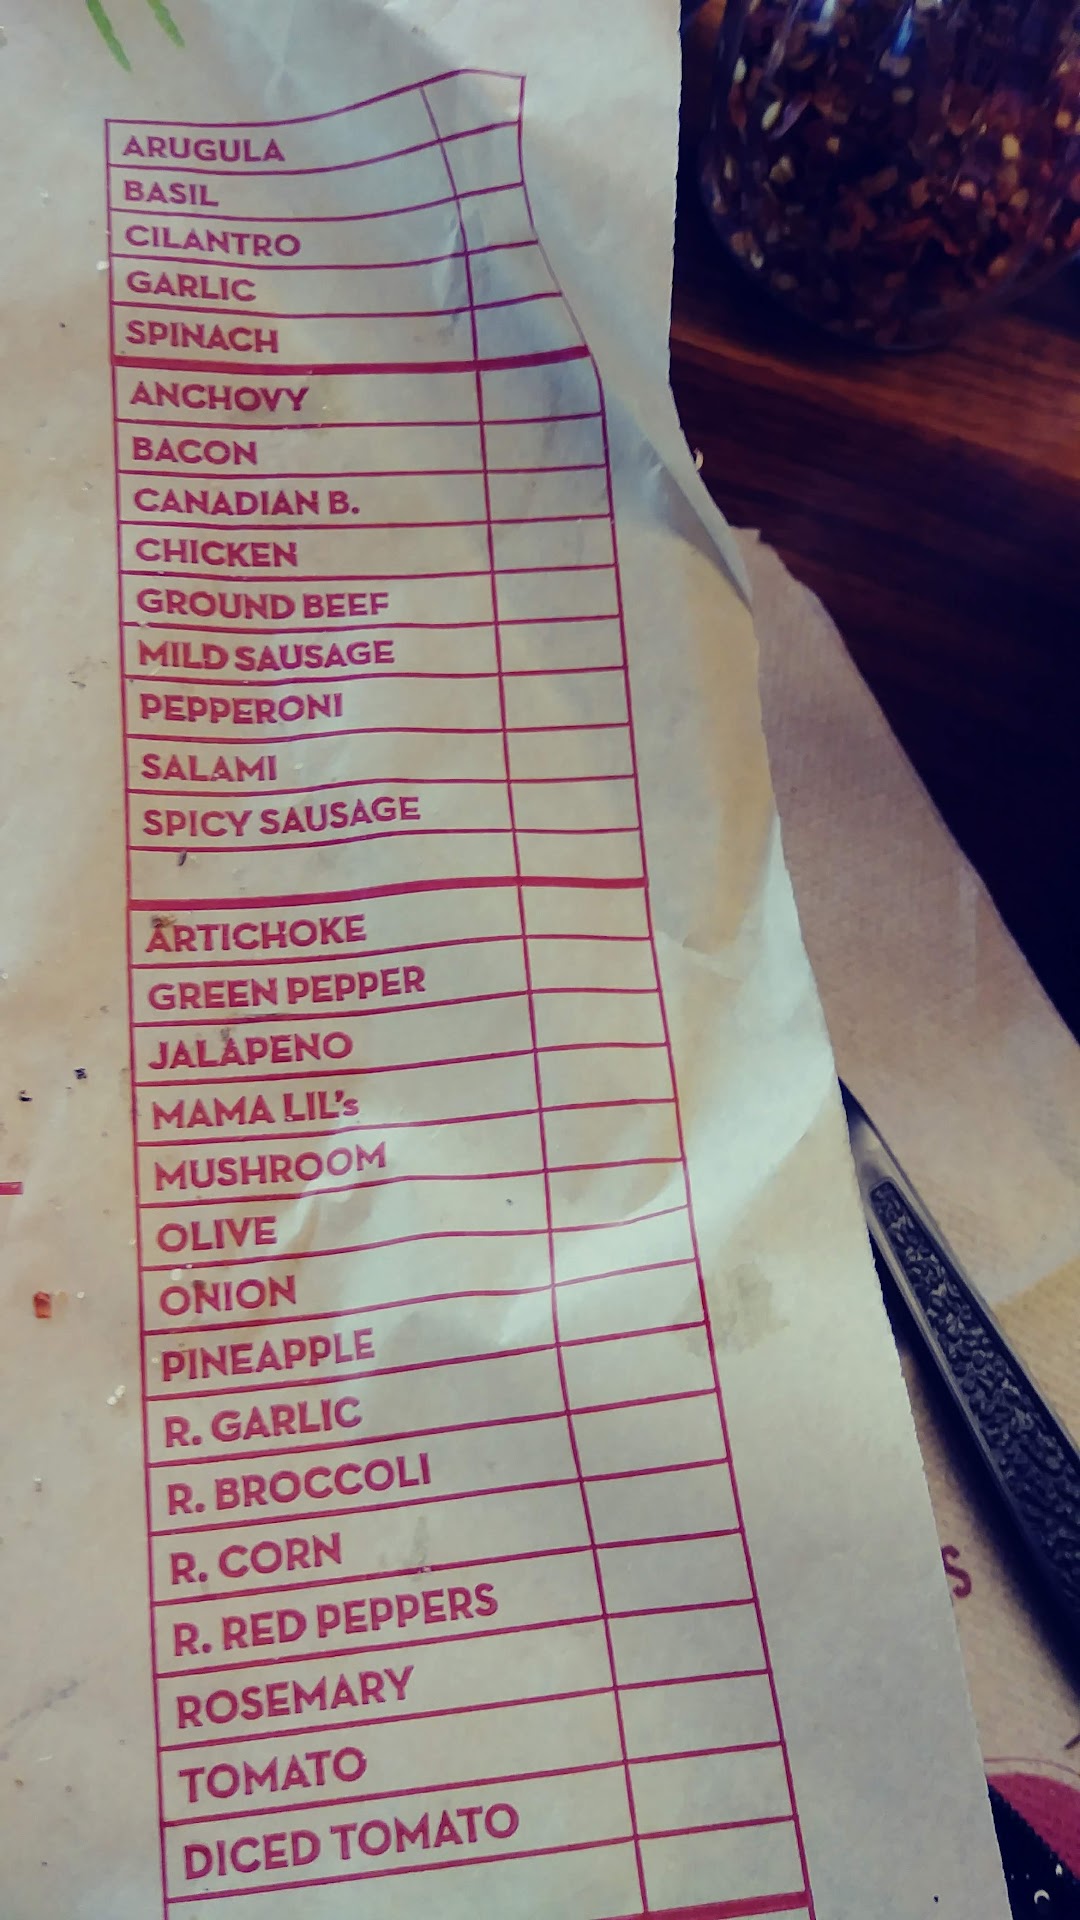 ARUGULA
BASIL
CILANTRO
GARLIC
SPINACH
ANCHOVY
BACON
CANADIAN B.
CHICKEN
GROUND BEEF
MILD SAUSAGE
PEPPERONI
SALAMI
SPICY SAUSAGE
ARTICHOKE
GREEN PEPPER
JALAPENO
MAMA LIL's
MUSHROOM
OLIVE
ONION
PINEAPPLE
R. GARLIC
R. BROCCOLI
R. CORN
R. RED PEPPERS
ROSEMARY
TOMATO
DICED TOMATO